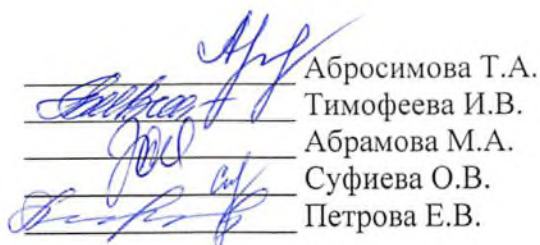 Абросимова Т.А.
Тимофеева И.В.
Абрамова М.А.
Суфиева О.В.
Петрова Е.В.